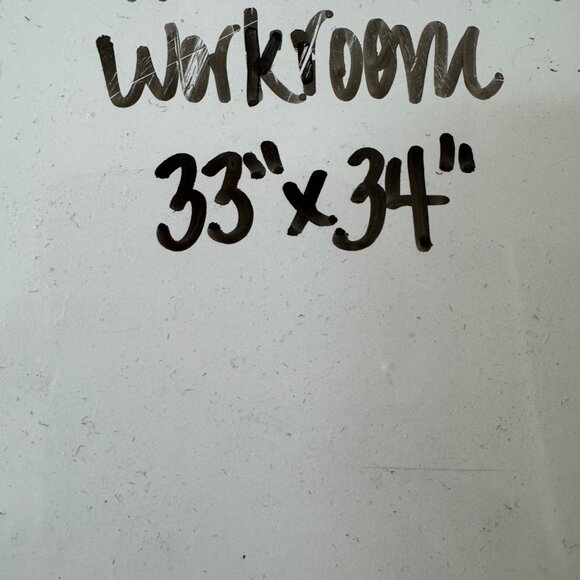 workroom
33" x 34"